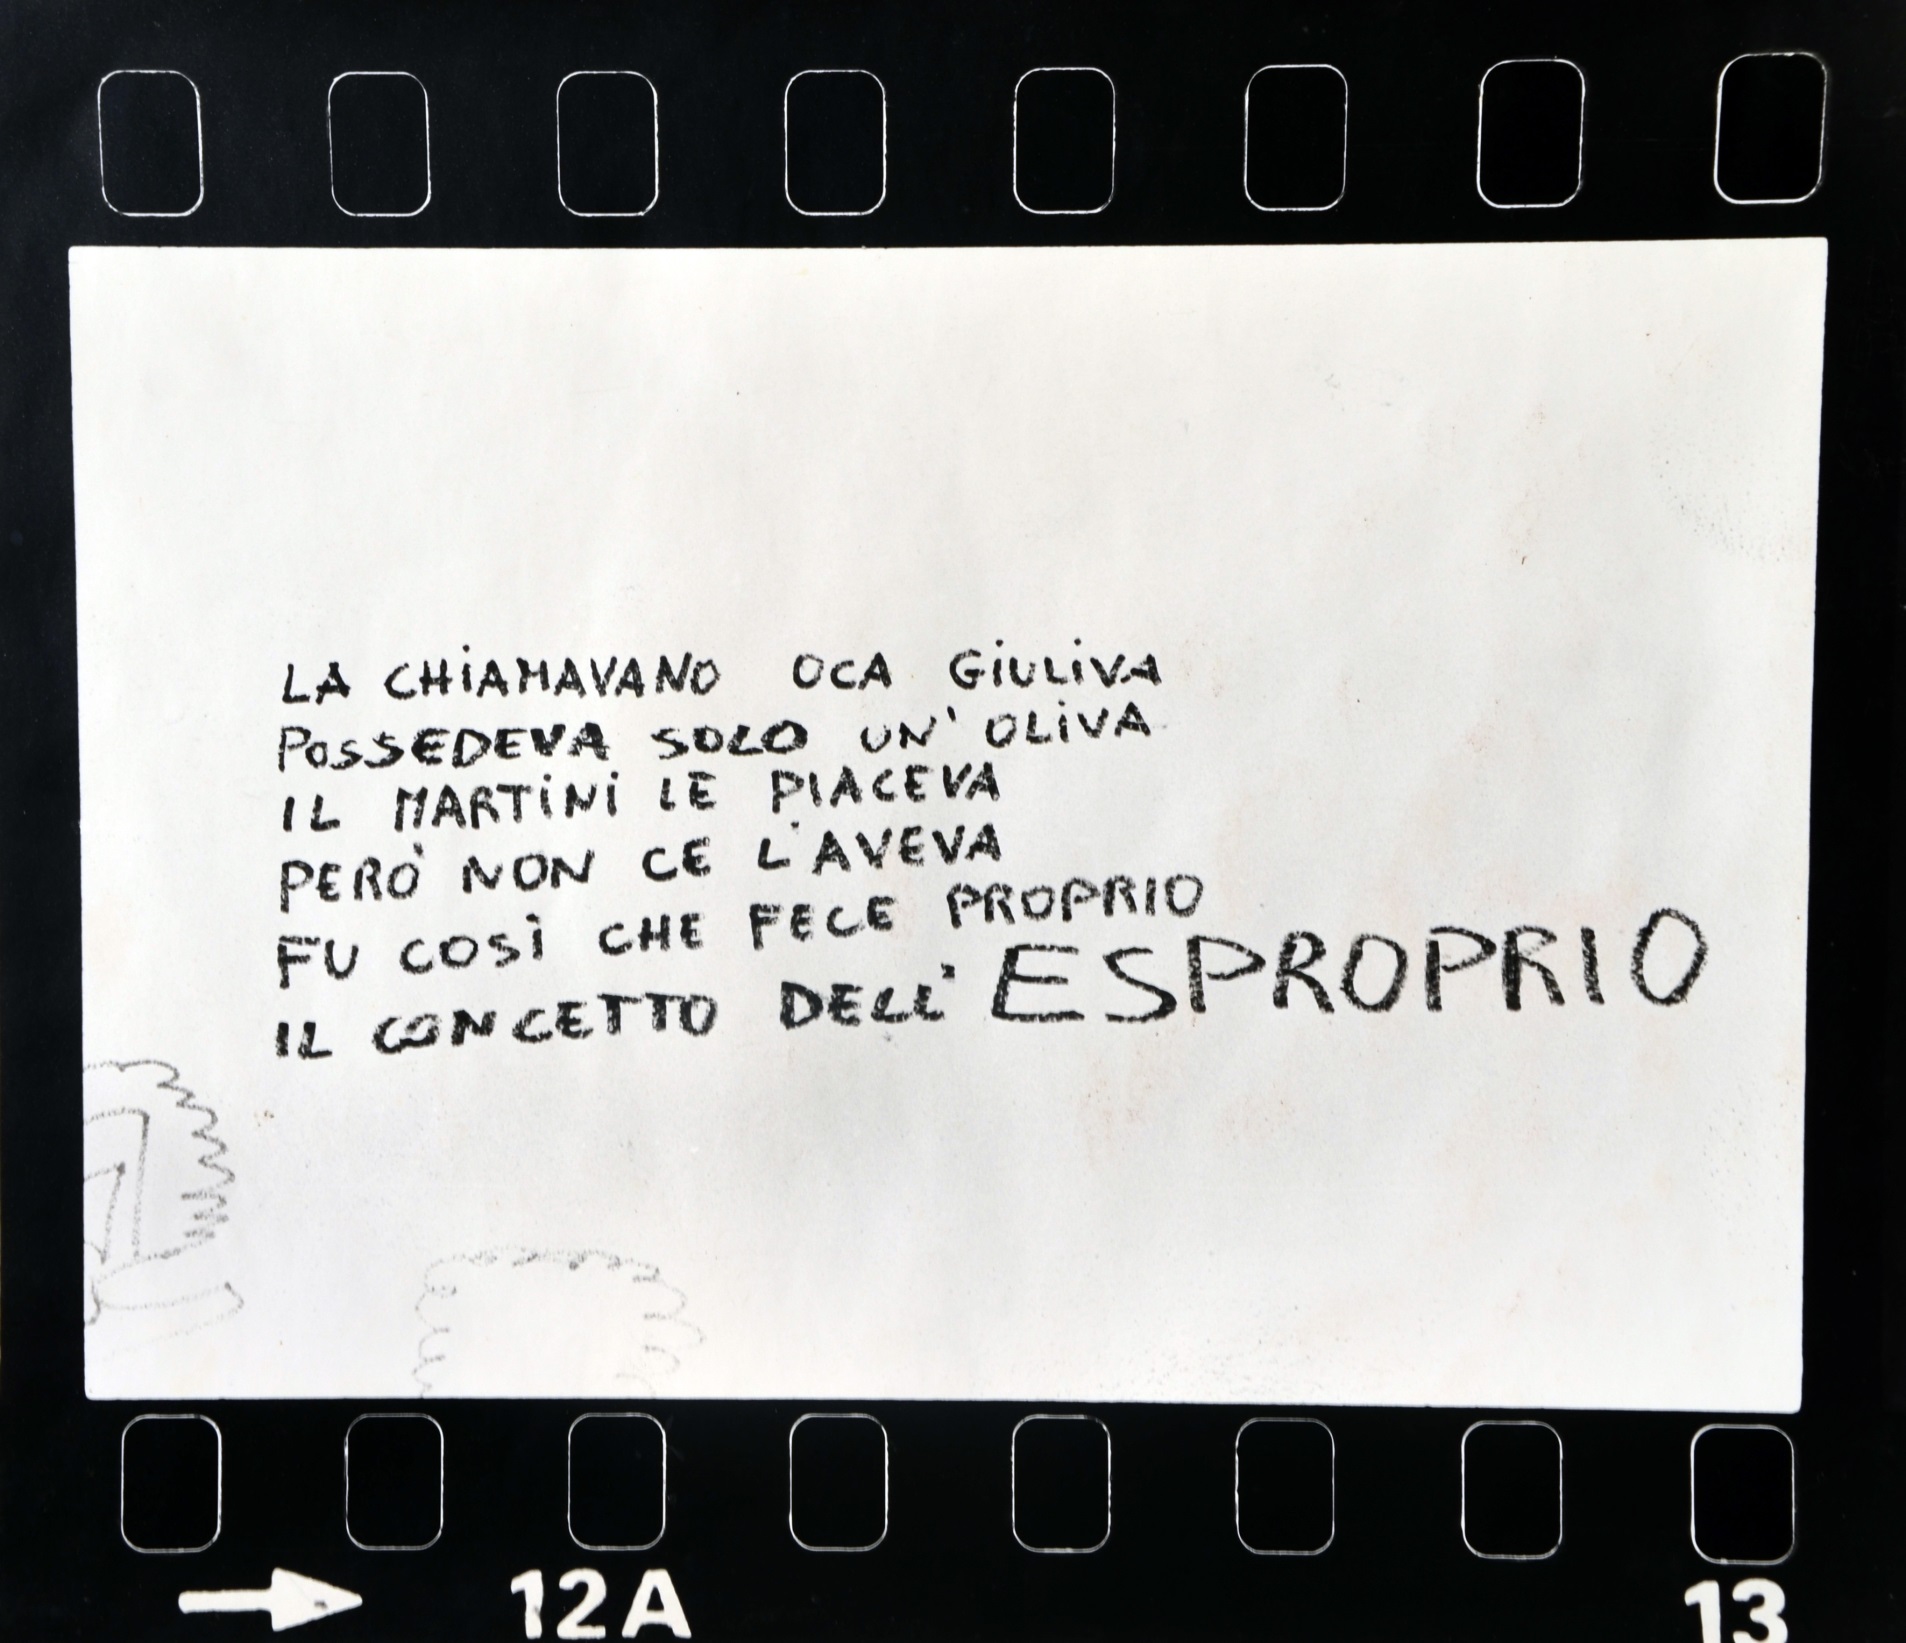 LA CHIAMAVANO OCA GIULIVA
POSSEDEVA SOLO UN' OLIVA
IL MARTINI LE PIACEVA
PERÒ NON CE L'AVEVA
FU COSÌ CHE FECE PROPRIO
IL CONCETTO DELL' ESPROPRIO
12A 13